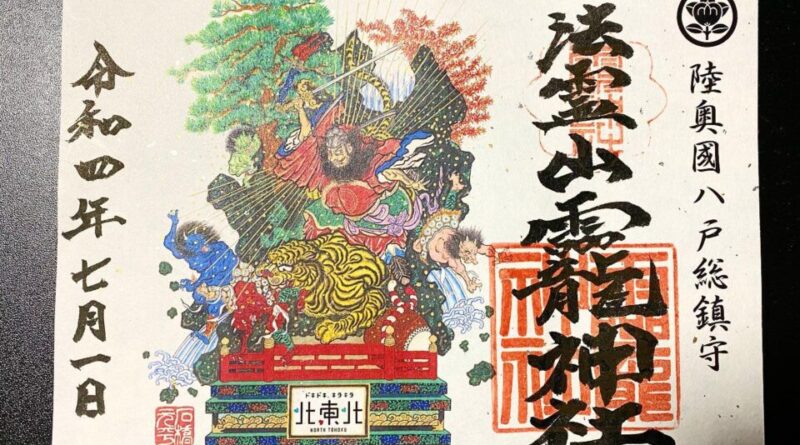 陸奥國八戸総鎮守
法霊山龗神社
令和四年七月一日
北東北
NORTH TOHOKU